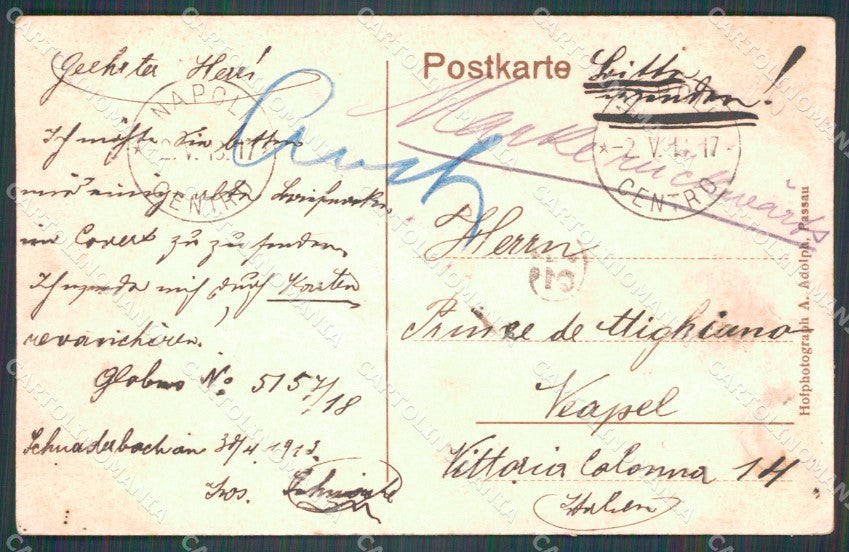 Geehrter Herr!
Ich möchte Sie bitten
mir einige alte Briefmarken
im Covert zu zu senden.
Ich werde mich durch Karten
revanchieren.
Globus No. 5157/18
30/4 1913
Jos.
Postkarte
bitte
wenden!
Marke rückwärts
NAPOLI
CENTRO
2.V.13.17
CENTRO
Herrn
Prince de Mighiano
Neapel
Vittoria Colonna 14
Italien
Hofphotograph A. Adolph, Passau
CARTOLINOMANIA